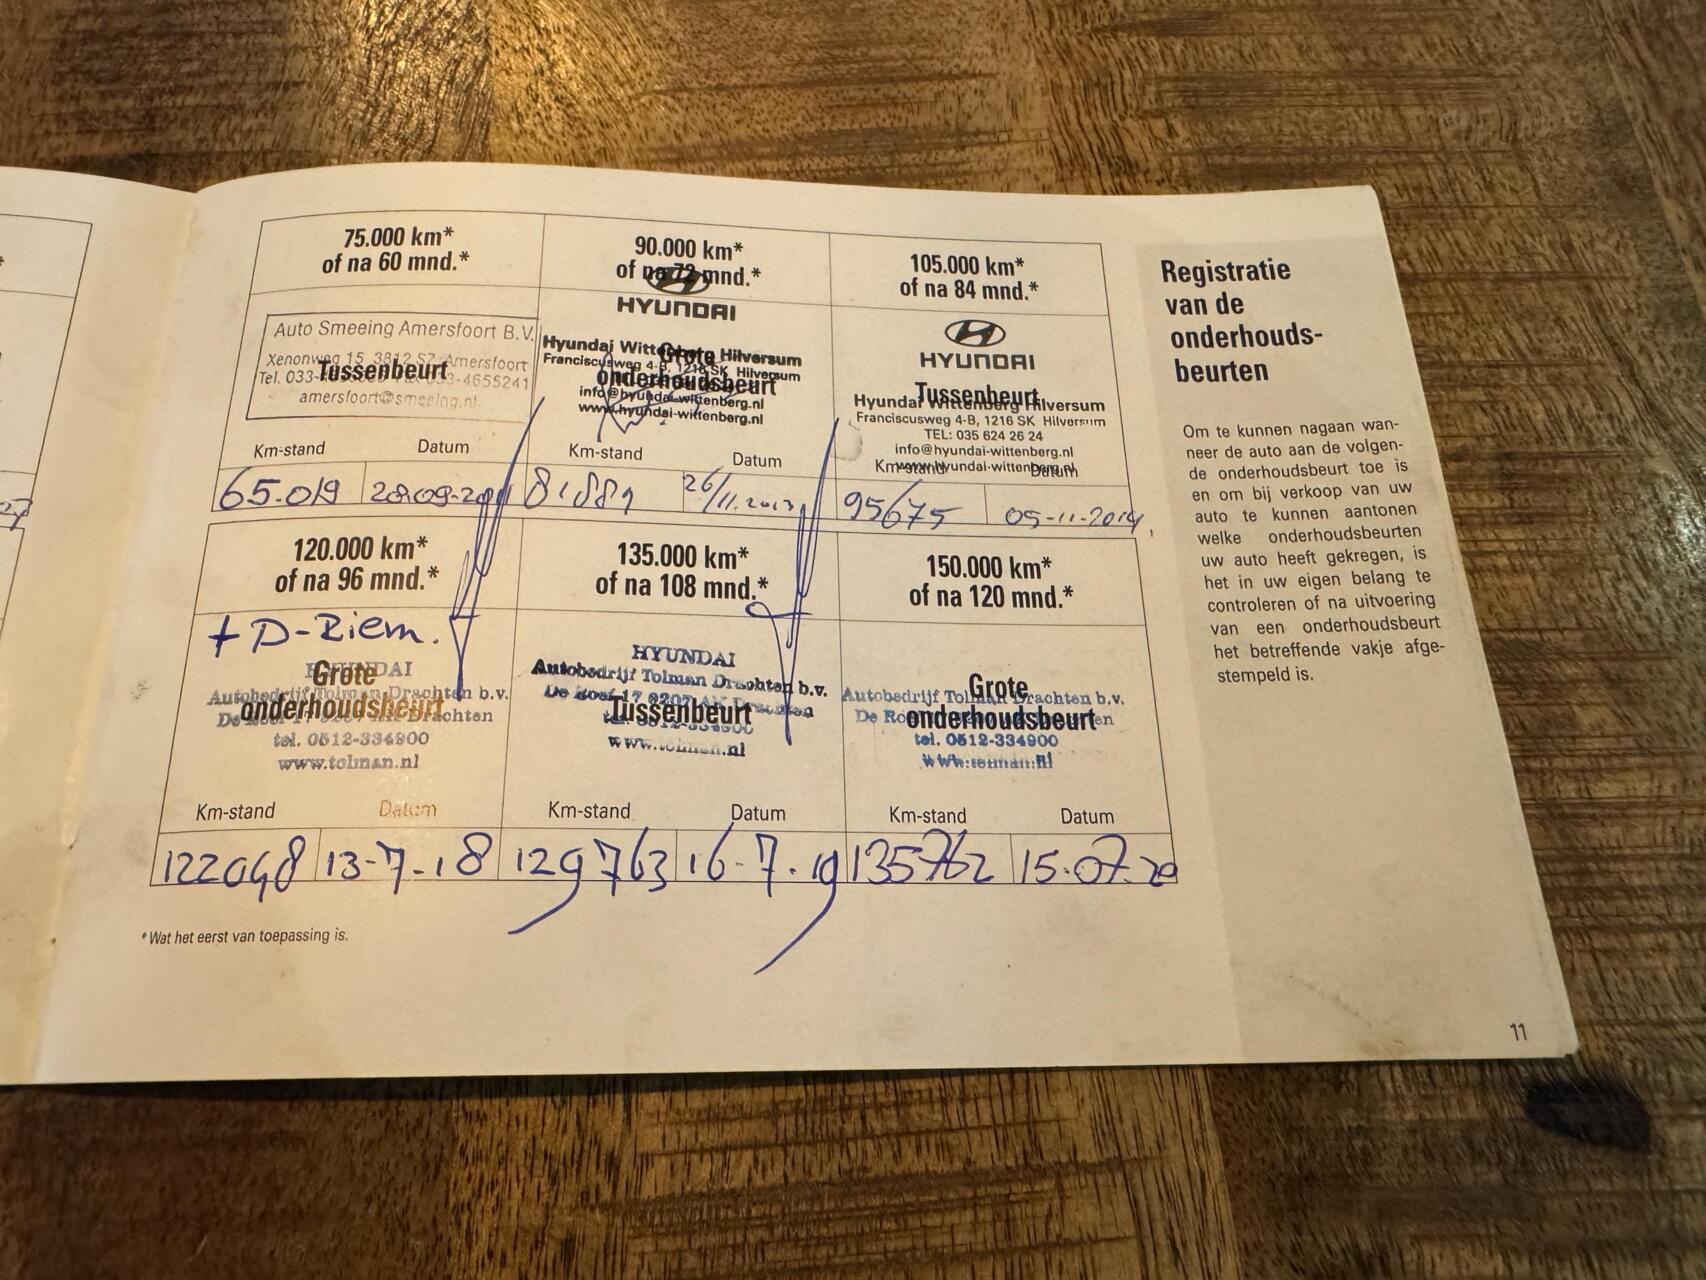 75.000 km*
of na 60 mnd.*
Auto Smeeing Amersfoort B.V.
Xenonweg 15, 3812 SZ Amersfoort
Tussenbeurt
Tel. 033- 033-4655241
amersfoort@smeeing.nl
Km-stand Datum
65.019
90.000 km*
of na 72 mnd.*
HYUNDAI
Hyundai Wittenberg Hilversum
Grote
Franciscusweg 4-B, 1216 SK Hilversum
onderhoudsbeurt
info@hyundai-wittenberg.nl
www.hyundai-wittenberg.nl
Km-stand Datum
26/11.2013
105.000 km*
of na 84 mnd.*
HYUNDAI
Tussenbeurt
Hyundai Wittenberg Hilversum
Franciscusweg 4-B, 1216 SK Hilversum
TEL: 035 624 26 24
info@hyundai-wittenberg.nl
Km-stand Datum
www.hyundai-wittenberg.nl
95675 05-11-2014
120.000 km*
of na 96 mnd.*
+ D-Riem.
HYUNDAI
Grote
Autobedrijf Tolman Drachten b.v.
onderhoudsbeurt
Drachten
tel. 0512-334900
www.tolman.nl
Km-stand Datum
122048 13-7-18
135.000 km*
of na 108 mnd.*
HYUNDAI
Autobedrijf Tolman Drachten b.v.
Tussenbeurt
www.tolman.nl
Km-stand Datum
129763 16-7-19
150.000 km*
of na 120 mnd.*
Grote
Autobedrijf Tolman Drachten b.v.
onderhoudsbeurt
tel. 0512-334900
www.tolman.nl
Km-stand Datum
135762 15-07-20
* Wat het eerst van toepassing is.
Registratie
van de
onderhouds-
beurten
Om te kunnen nagaan wan-
neer de auto aan de volgen-
de onderhoudsbeurt toe is
en om bij verkoop van uw
auto te kunnen aantonen
welke onderhoudsbeurten
uw auto heeft gekregen, is
het in uw eigen belang te
controleren of na uitvoering
van een onderhoudsbeurt
het betreffende vakje afge-
stempeld is.
11